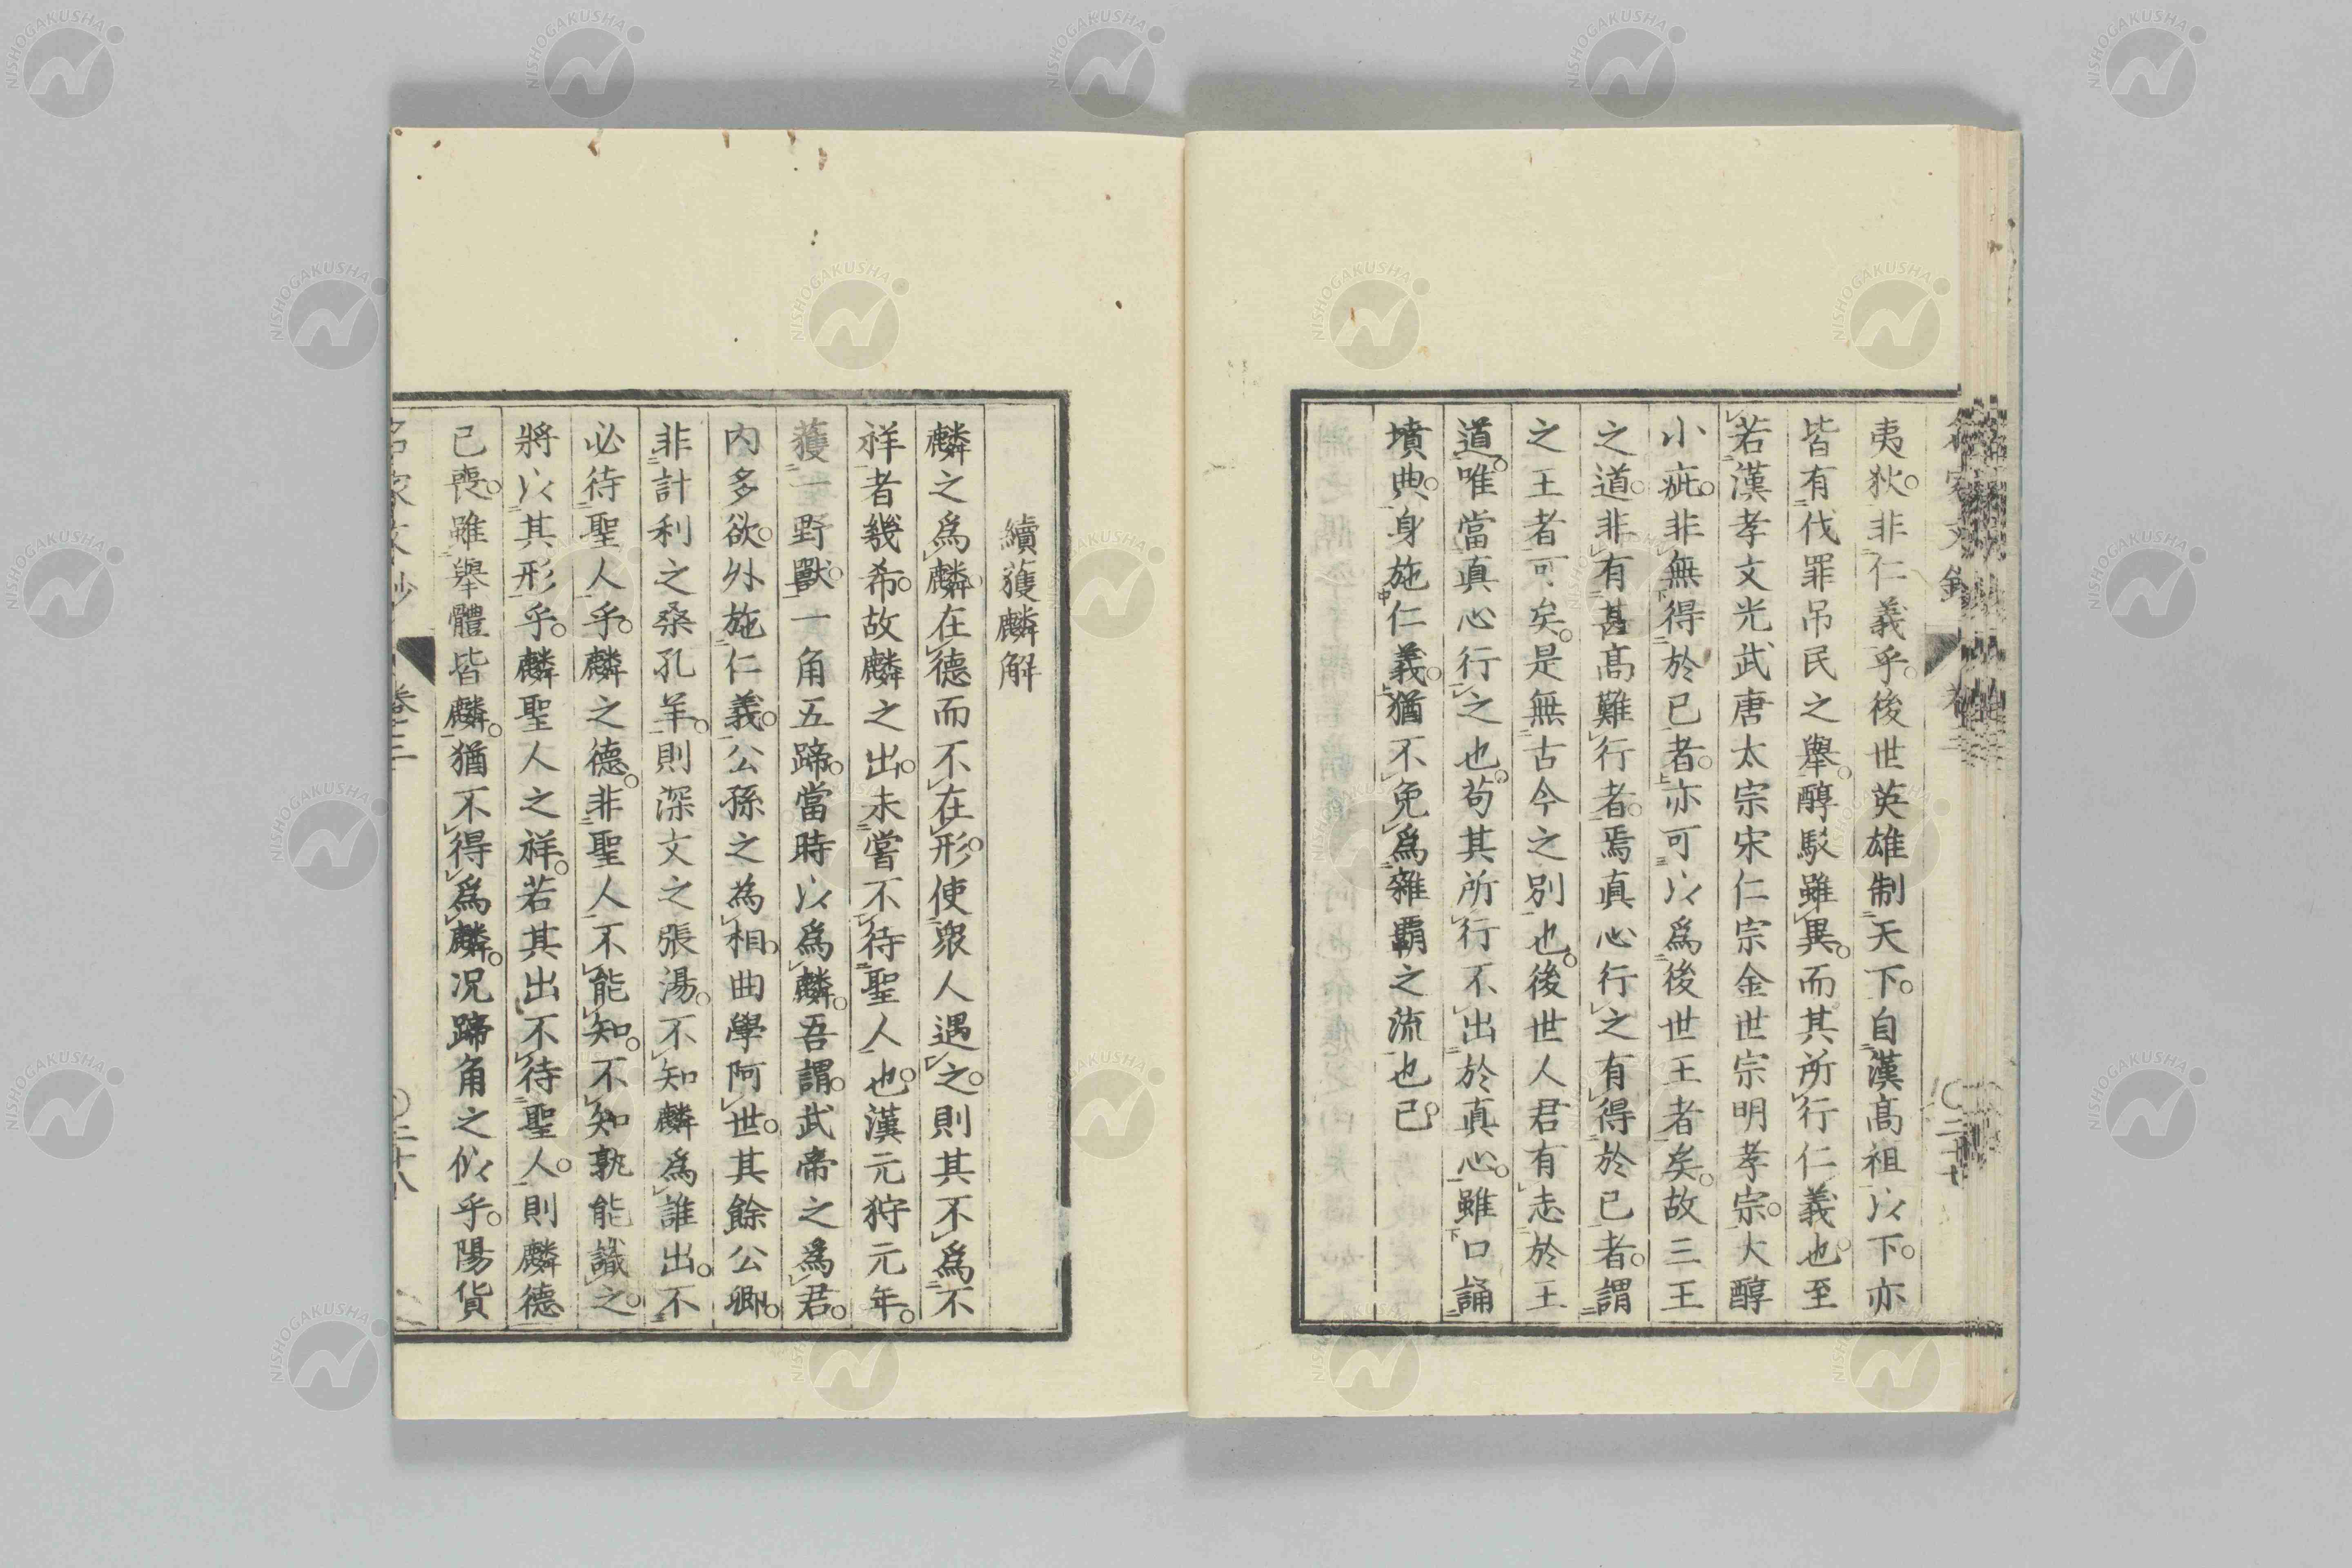 夷狄。非仁義乎。後世英雄制天下。自漢高祖以下。亦
皆有伐罪吊民之舉。醇駁雖異。而其所行仁義也。至
若漢孝文光武唐太宗宋仁宗金世宗明孝宗。大醇
小疵。非無得於已者。亦可以爲後世王者矣。故三王
之道。非有甚高難行者。焉真心行之有得於已者。謂
之王者可矣。是無古今之別也。後世人君有志於王
道。唯當真心行之也。苟其所行不出於真心。雖口誦
墳典。身施仁義。猶不免爲雜覇之流也已。
續獲麟解
麟之爲麟。在德而不在形。使衆人遇之。則其不爲不
祥者幾希。故麟之出。未嘗不待聖人也。漢元狩元年。
獲一野獸。一角五蹄。當時以爲麟。吾謂。武帝之爲君。
内多欲。外施仁義。公孫之為相。曲學阿世。其餘公卿。
非計利之桑孔羊。則深文之張湯。不知麟爲誰出。不
必待聖人乎。麟之德。非聖人不能知。不知孰能識之。
將以其形乎。麟聖人之祥。若其出不待聖人。則麟德
已喪。雖舉體皆麟。猶不得爲麟。况蹄角之似乎。陽貨
名家文抄 卷三 〇二十八
NISHOGAKUSHA